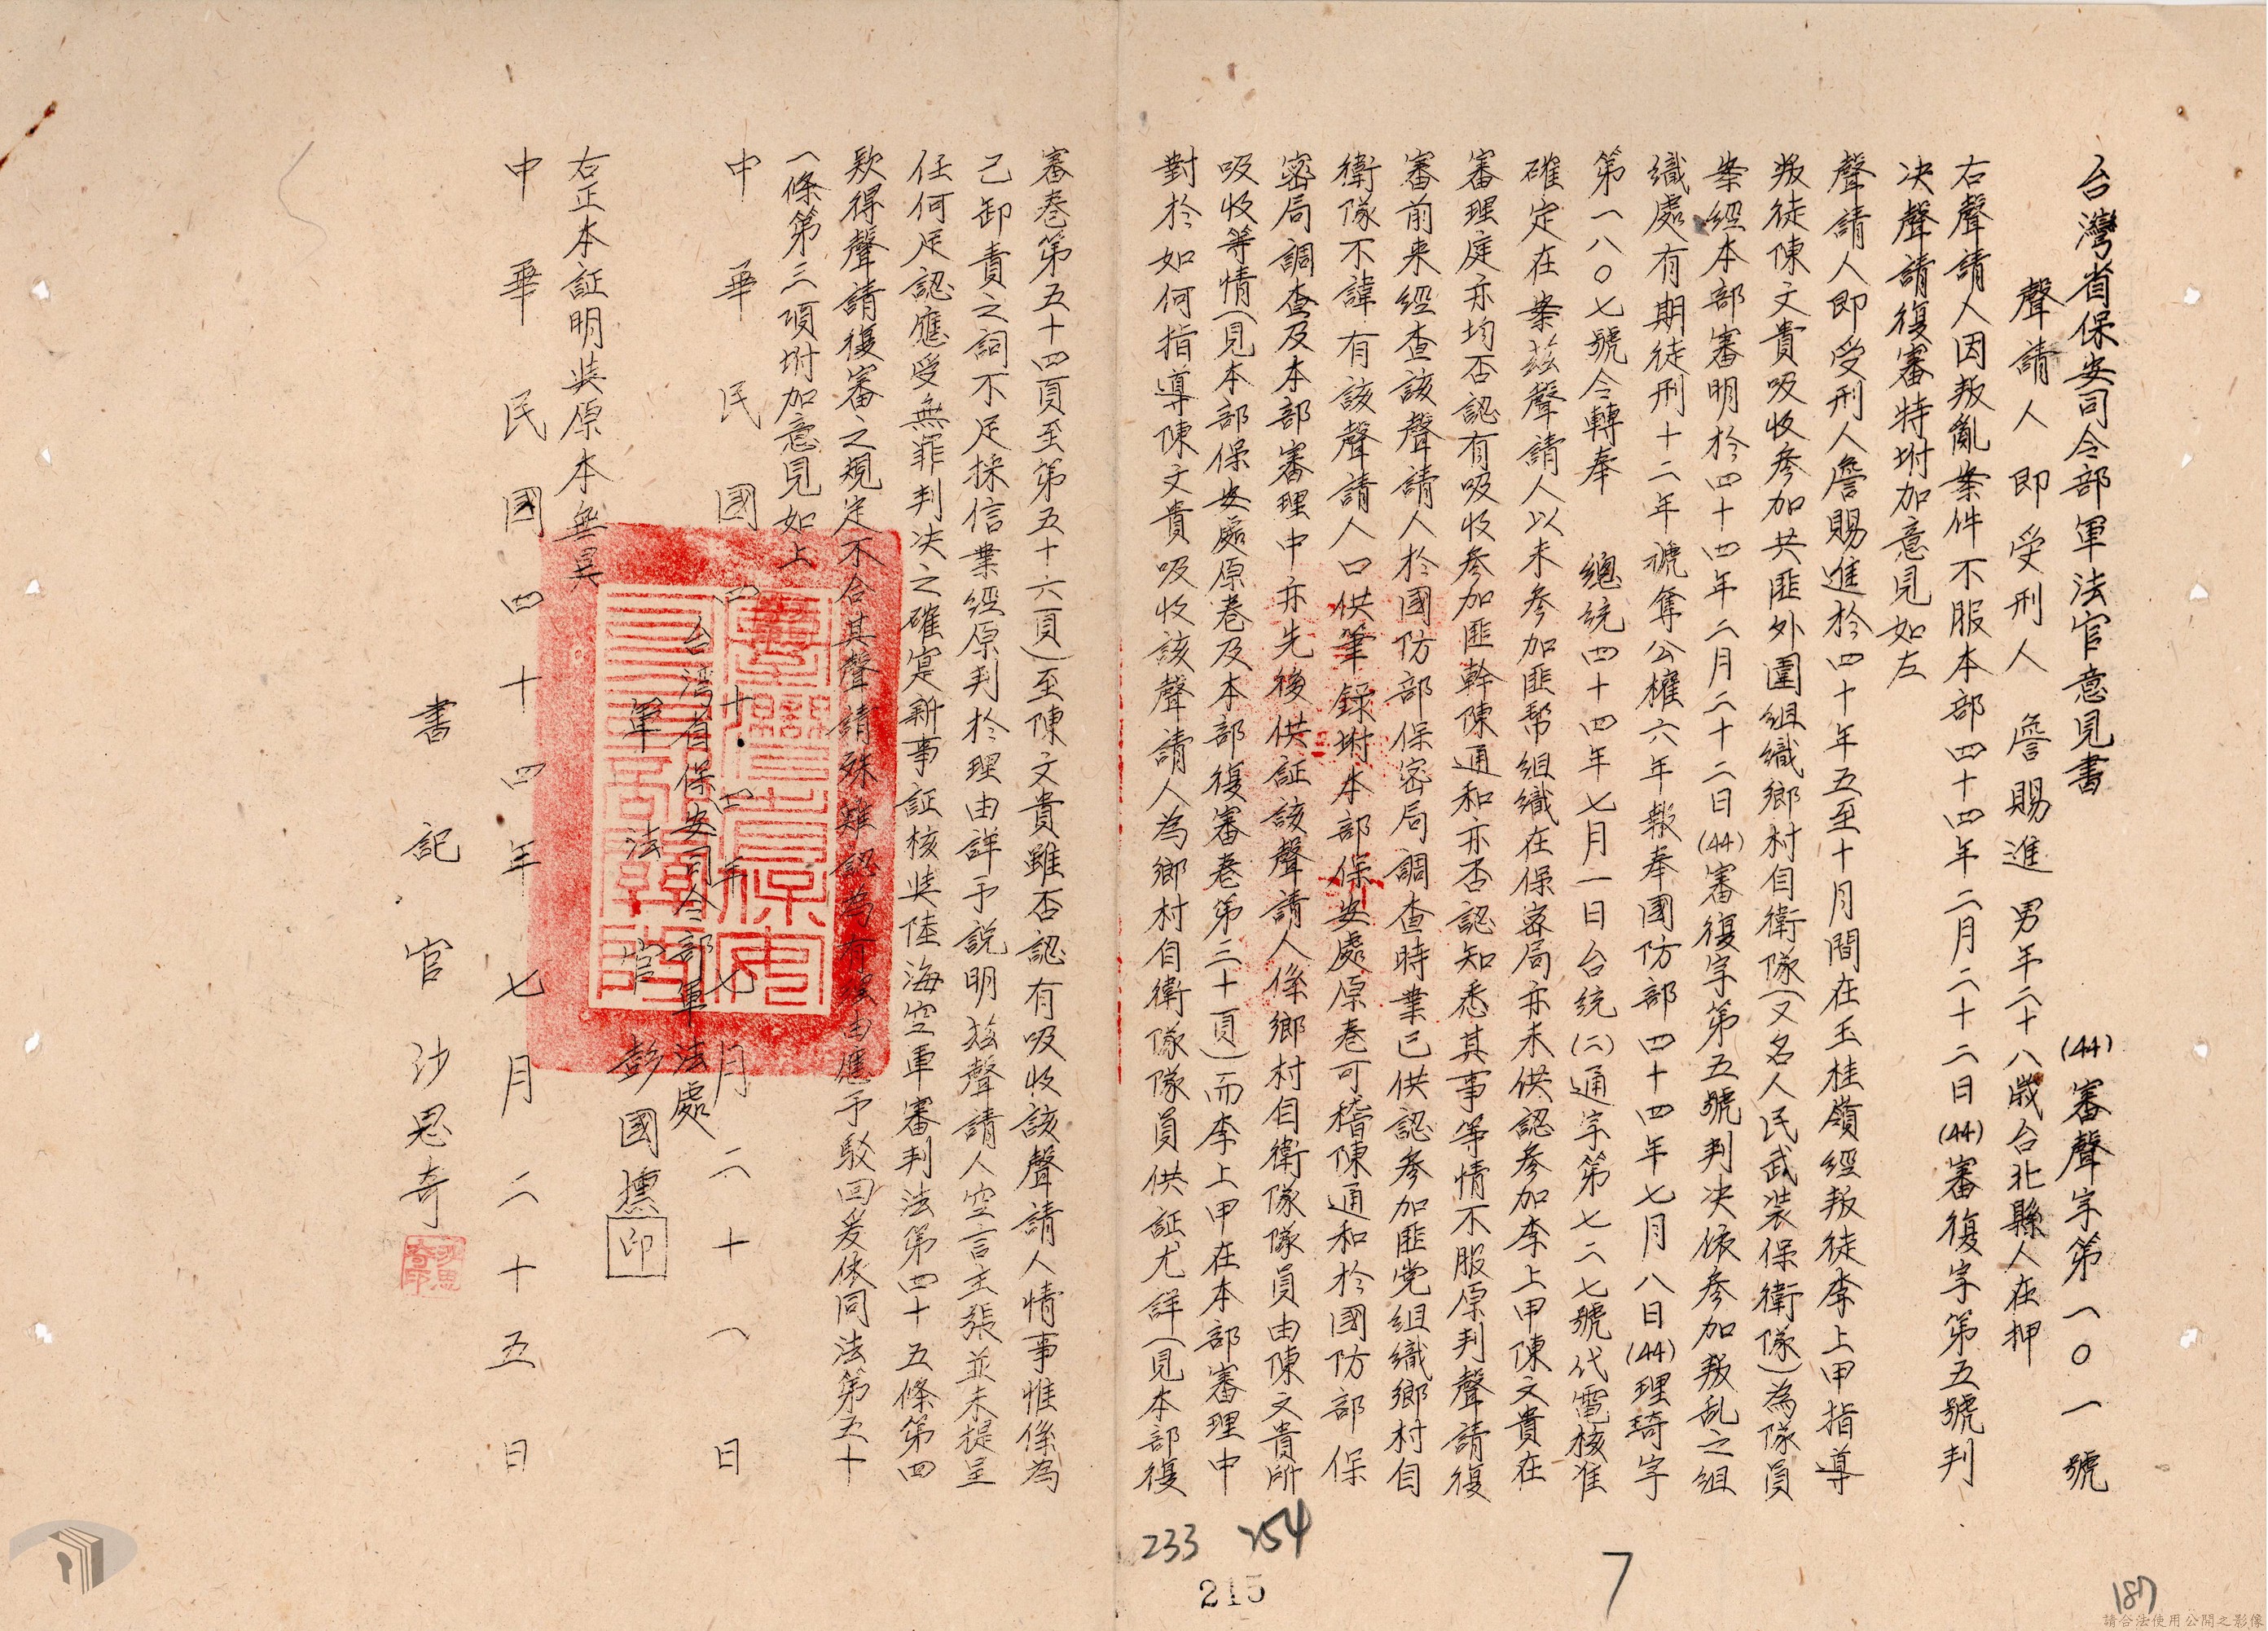 台灣省保安司令部軍法官意見書
(44)審聲字第一〇一號
聲請人即受刑人 詹賜進 男年二十八歲台北縣人在押
右聲請人因叛亂案件不服本部四十四年二月二十二日(44)審復字第五號判
決聲請復審特坿加意見如左
聲請人即受刑人詹賜進於四十年五至十月間在玉桂嶺經叛徒李上甲指導
叛徒陳文貴吸收參加共匪外圍組織鄉村自衛隊(又名人民武裝保衛隊)為隊員
案經本部審明於四十四年二月二十二日(44)審復字第五號判决依參加叛乱之組
織處有期徒刑十二年褫奪公權六年報奉國防部四十四年七月八日(44)理琦字
第一八〇七號令轉奉 總統四十四年七月一日台統(二)通字第七二七號代電核准
確定在案茲聲請人以未參加匪帮組織在保密局亦未供認參加李上甲陳文貴在
審理庭亦均否認有吸收參加匪幹陳通和亦否認知悉其事等情不服原判聲請復
審前来經查該聲請人於國防部保密局調查時業已供認參加匪党組織鄉村自
衛隊不諱有該聲請人口供筆錄坿本部保安處原卷可稽陳通和於國防部保
密局調查及本部審理中亦先後供証該聲請人係鄉村自衛隊隊員由陳文貴所
吸收等情(見本部保安處原卷及本部復審卷第三十頁)而李上甲在本部審理中
對於如何指導陳文貴吸收該聲請人為鄉村自衛隊隊員供証尤詳(見本部復
審卷第五十四頁至第五十六頁)至陳文貴雖否認有吸收該聲請人情事惟係為
己卸責之詞不足採信業經原判於理由詳予說明茲聲請人空言主張並未提呈
任何足認應受無罪判决之確實新事証核與陸海空軍審判法第四十五條第四
欵得聲請復審之規定不合其聲請殊難認為有理由應予駁回爰依同法第五十
一條第三項坿加意見如上
中華民國四十四年七月二十八日
台湾省保安司令部軍法處
軍法官彭國壎印
右正本証明與原本無異
中華民國四十四年七月二十五日
書記官沙思奇
233 254
215
7
187
請合法使用公開之影像